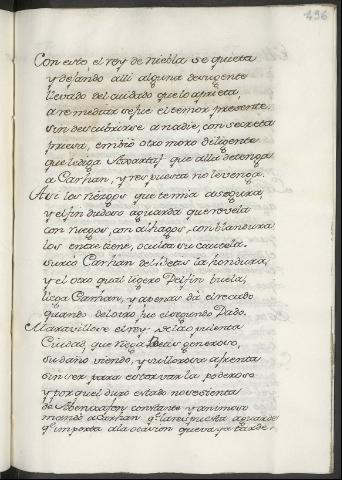 496
Con esto el rey de niebla se quieta
y dejando alli alguna de su gente
llevado del cuidado que lo aprieta,
a remediar se fue el temor presente.
sin descubrirse a nadie, con secreta
prueva, embió otro moro diligente
que diga Axartaf que alla detenga
a Carhan, y respuesta no le venga.
Asi los riesgos que temia asegura,
y el fin dudoso aguarda que revela
con ruegos, con alhagos, con blandura
los entretiene, oculta su cautela.
surcó Carhan de la hondura,
y el otro qual ligero Delfin buela,
llega Carhan, y apenas dá el recado
quando del otro fue el segundo Dado.
Maravillose el rey de la opulenta
Ciudad, que niega generoso,
su daño viendo, y su llorosa afrenta
sin ser para estorvarla poderoso
y porque el duro estado no se sienta
de Abenaxafon constante y animoso
mandó a Carhan qe la respuesta aguarde
qe importa a la ocasion que vaya tarde.